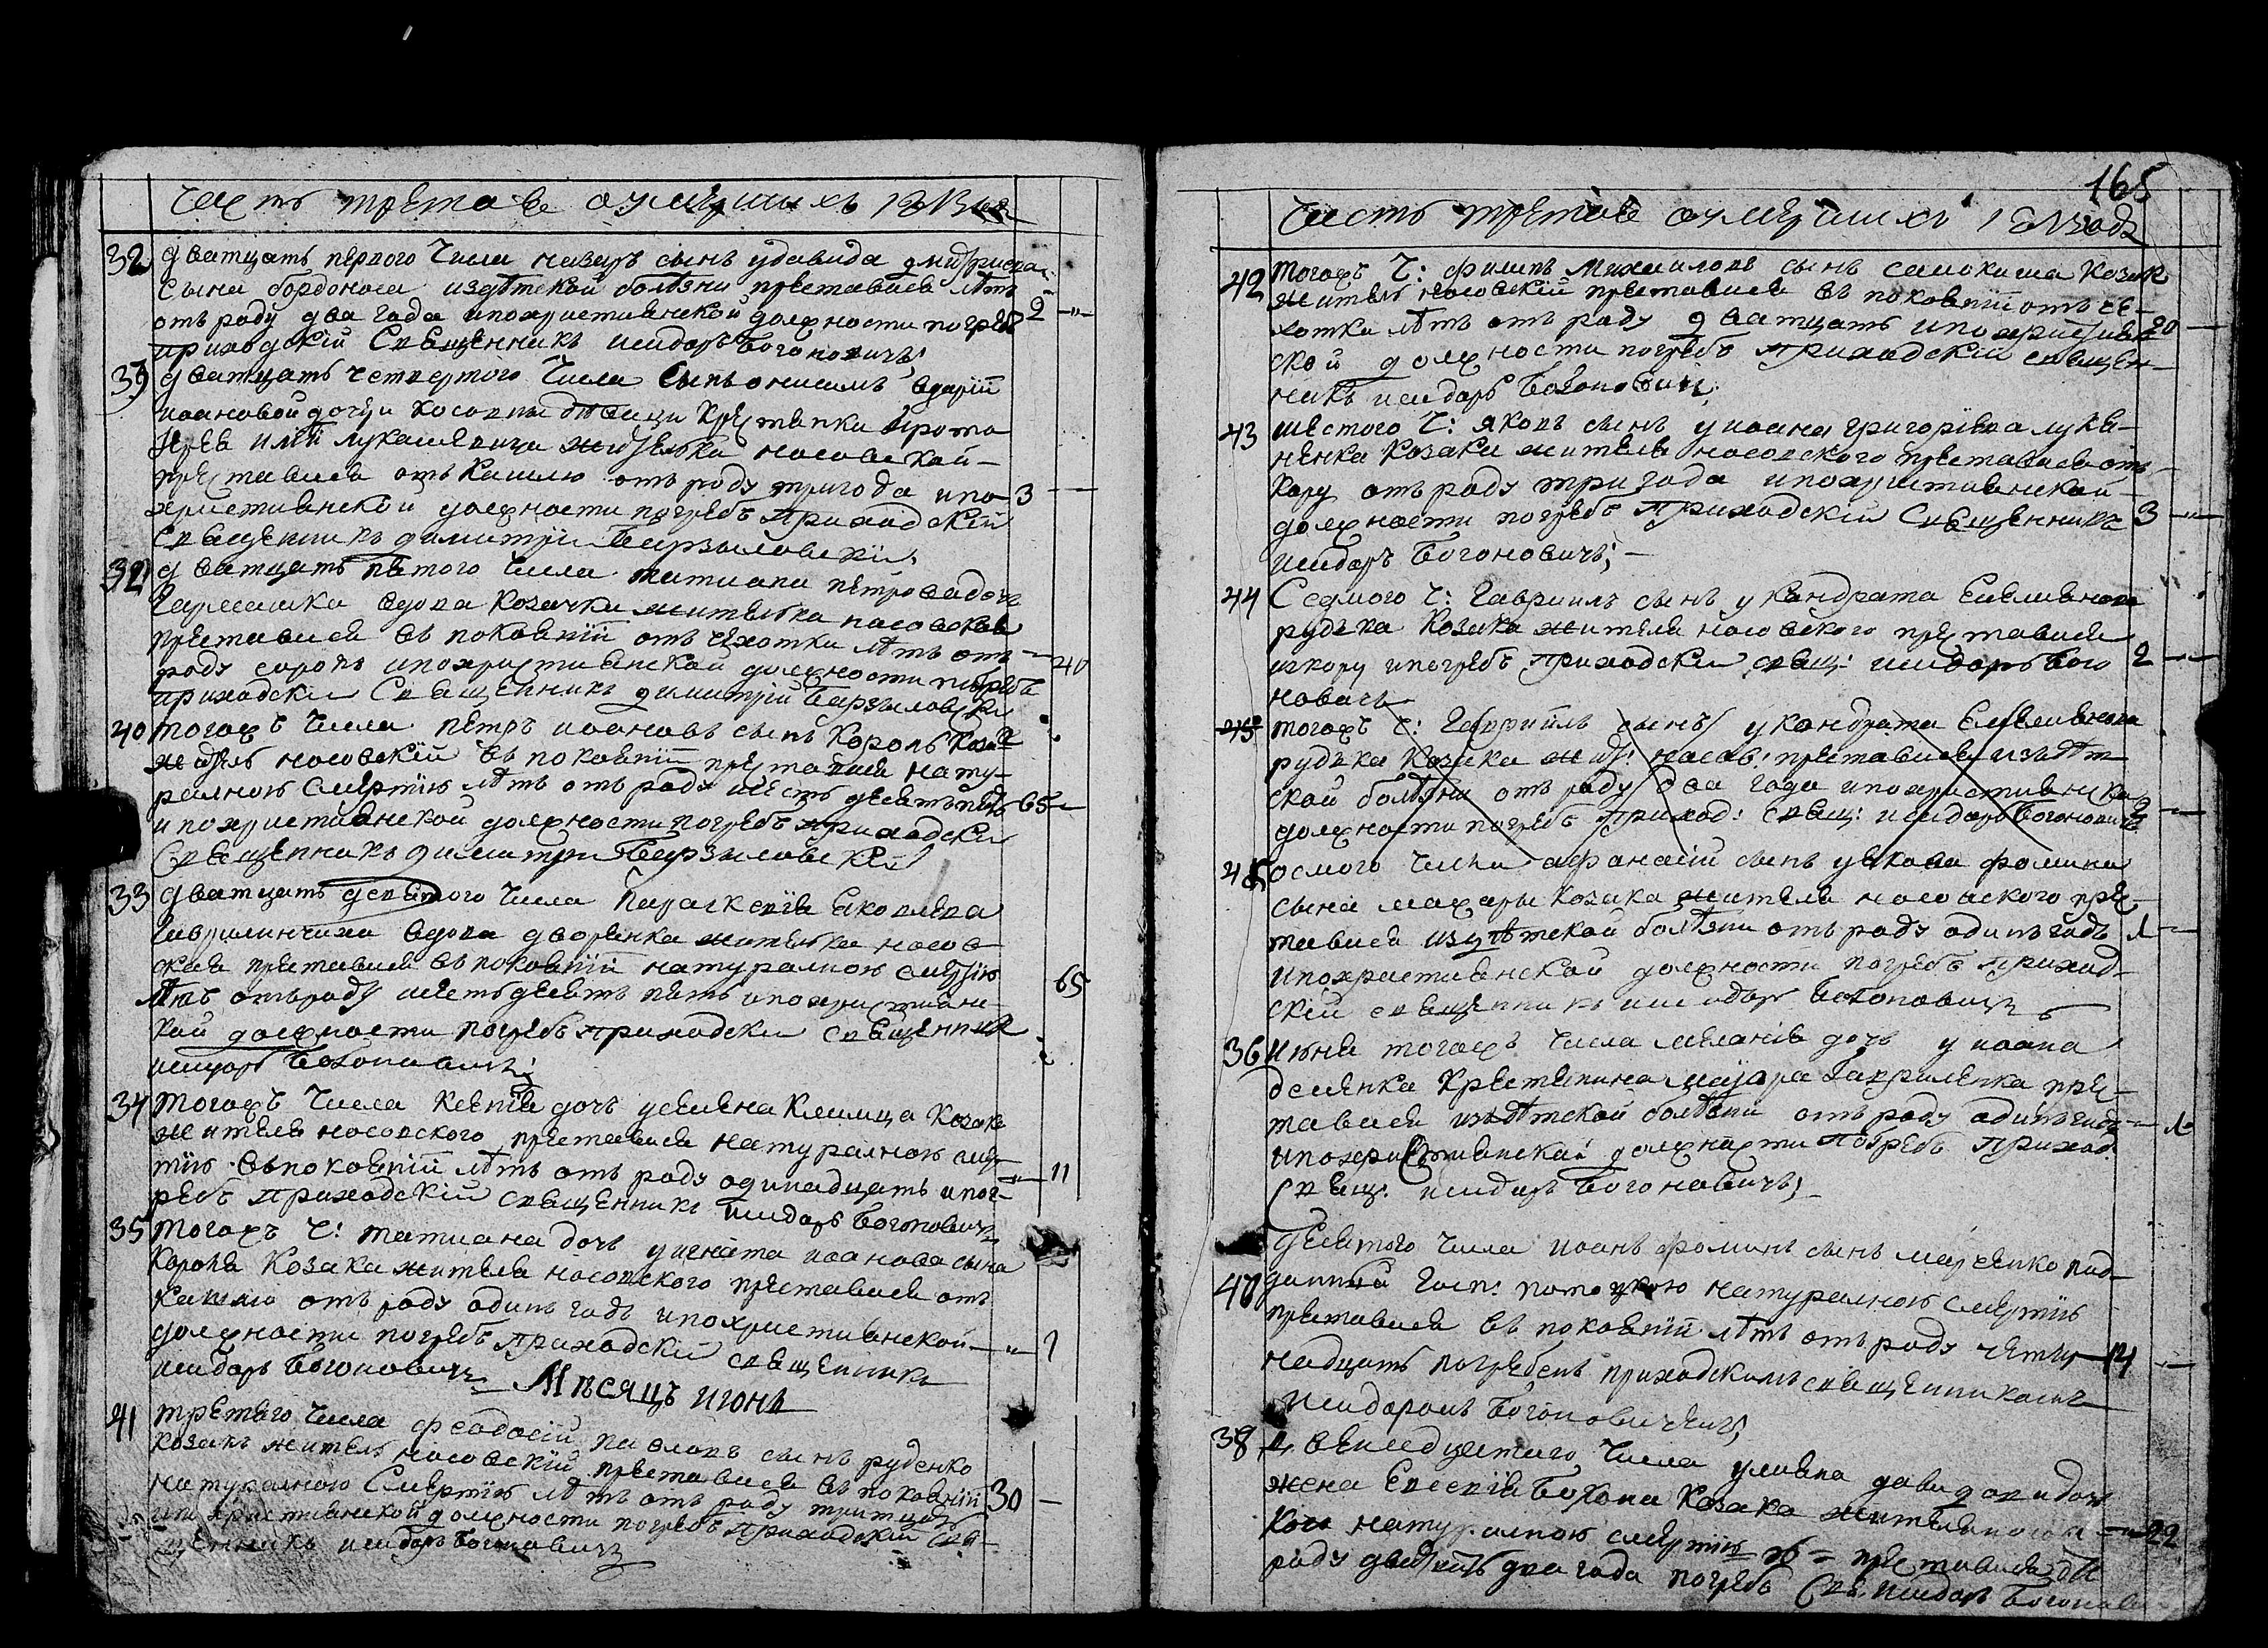 часть третая о умерших
38 дватцать первого числа назаръ сынъ удавида
сына бордоноса издѣтской болѣзни преставися лѣтъ
отъ роду два года ипохристиянской должности погребъ 2
приходскїй священникъ исидоръ Богоновичъ;
39 дватцать четвертого числа сынъ онисимъ
иоановой дочери дѣвици крестянки прото
лукашевича жителка носовская
преставися отъ кашлю отъ роду тригода ипо 3
християнской должности погребъ приходскїй
священникъ димитрїи Барзыловскїи
32 дватцать пятого числа татиана петровадочь
вдова козачка жителка носовская
преставися въ покаянїи отъ чехотки лѣтъ отъ
роду сорокъ ипохристиянской должности погребъ 40
приходски священникъ димитрїй Барзыловскїи
40 тогожъ числа петръ иоановъ сынъ король козакъ
житель носовскїй въ покаянїи преставися нату-
ралною смертїю лѣтъ отъ роду шестьдесятъпять 65
ипохристиянской должности погребъ приходски
священникъ димитри Барзыловскїй
33 дватцать девятого числа параскевїя яковлева
гаврилинчиха вдова дворянка жителка носов-
ская преставися въ покаянїи натуралною смертїю
лѣтъ отъроду шестьдесятъ пять ипохристиянс- 65
кой должности погребъ приходски священникъ
исидоръ Богоновичъ;
34 тогожъ числа ксенїя дочь усемена клемица козака
жителя носовского преставися натуралною смер-
тїю въпокаянїй лѣтъ отъ роду одинадцать ипог- 11
ребъ приходскїй священникъ исидоръ Богоновичъ
35 тогожъ ч: татиана дочь уигната иоанова сына
короля козака жителя носовского преставися отъ
кашлю отъ роду одинъ годъ ипохристиянской 1
должности погребъ приходскїй священникъ
исидоръ Богоновичъ
Мѣсяцъ июнь
41 третяго числа феодосїй павловъ сынъ руденко
козакъ житель носовскїй преставися въ покаянїи
натуралною смертїю лѣтъ отъ роду тритцать 30
ипохристиянской должности погребъ приходскїй свя-
щенникъ исидоръ Богоновичъ
165
часть третая о умершихъ
42 тогожъ ч: филипъ михаиловъ сынъ самокиша козакъ
житель носовскїй преставися въ покаянїи отъ че-
хотки лѣтъ отъ роду дватцать ипохристиян 20
ской должности погребъ приходскїй священ-
никъ исидоръ Богоновичъ;
43 шестого ч: яковъ сынъ у иоана григорїева лукя-
ненка козака жителя носовского преставися отъ
кору отъ роду три года ипохристиянской
должности погребъ приходскїй священникъ 3
исидоръ Богоновичъ; —
44 Седмого ч: гавриилъ сынъ у кондрата емелянова
рудька козака жителя носовского преставися
изкору ипогребъ приходски свящ: исидоръ Бого 2
новичъ
45 тогожъ ч: сынъ у кондрата емелянова
рудька козака жит: носов: преставися издѣт-
ской болѣзни отъ роду два года ипохристиянско
должности погребъ приход: свящ: исидоръ Богоновичъ 2
45 осмого числа афанасїй сынъ уякова фомина
сына мажары козака жителя носовского пре-
тавися издѣтской болѣзни отъ роду одинъ годъ 1
ипохристиянской должности погребъ приход-
скїй священникъ исидоръ Богоновичъ
36 тогожъ числа меланїя дочь у иоана
крестянина маїора гавриленка пре-
тавися издѣтской болѣзни отъ роду одинъ годъ 1
ипохристиянской должности погребъ приход
свящ: исидоръ Богоновичъ;
девятого числа иоанъ фоминъ сынъ марченко под-
47 данный госп: натуралною смертїю
преставися въ покаянїи лѣтъ отъ роду четыр- 14
надцать погребенъ приходскимъ священникомъ
исидоромъ Богоновичемъ;
38 числа улияна давидова дочь
жена Бохона козака жителя носов 22
кого натуралною смертїю преставися отъ
роду дватцать два года погребъ свя: исидоръ Богонови